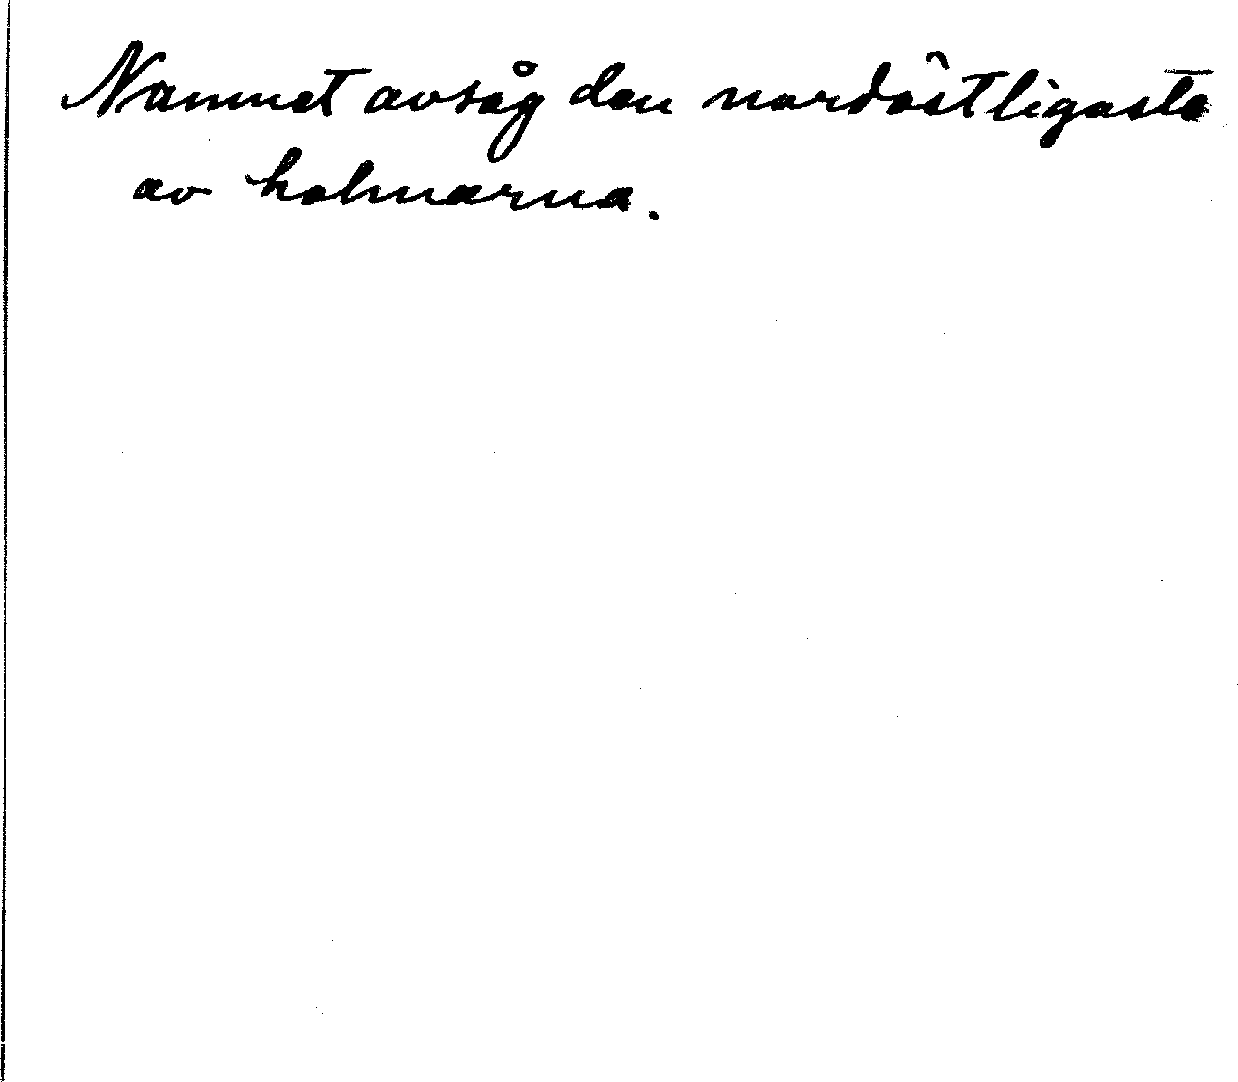 Namnet avsåg den nordöstligaste
av holmarna.